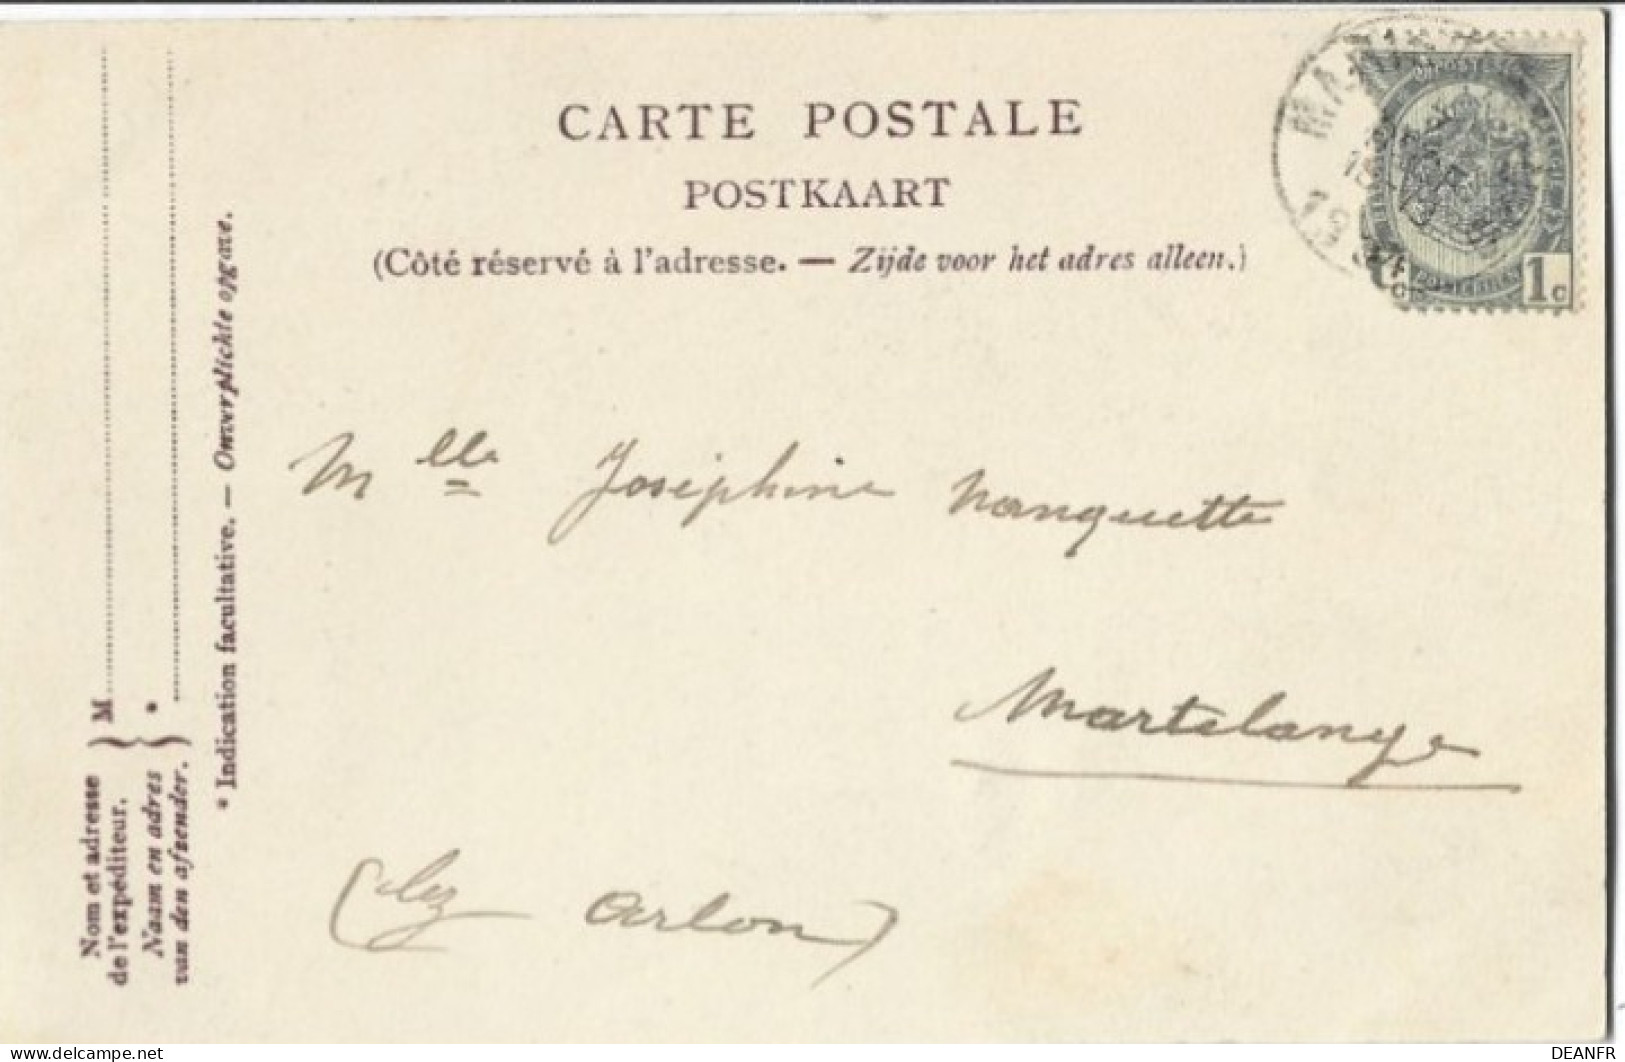 CARTE POSTALE
POSTKAART
(Côté réservé à l'adresse. — Zijde voor het adres alleen.)
1c
Mlle Joséphine Nanquette
Martelange
(chez Arlon)
Nom et adresse
de l'expéditeur. } M
Naam en adres
van den afzender. } *
* Indication facultative. — Onverplichte opgane.
delcampe.net
DEANFR